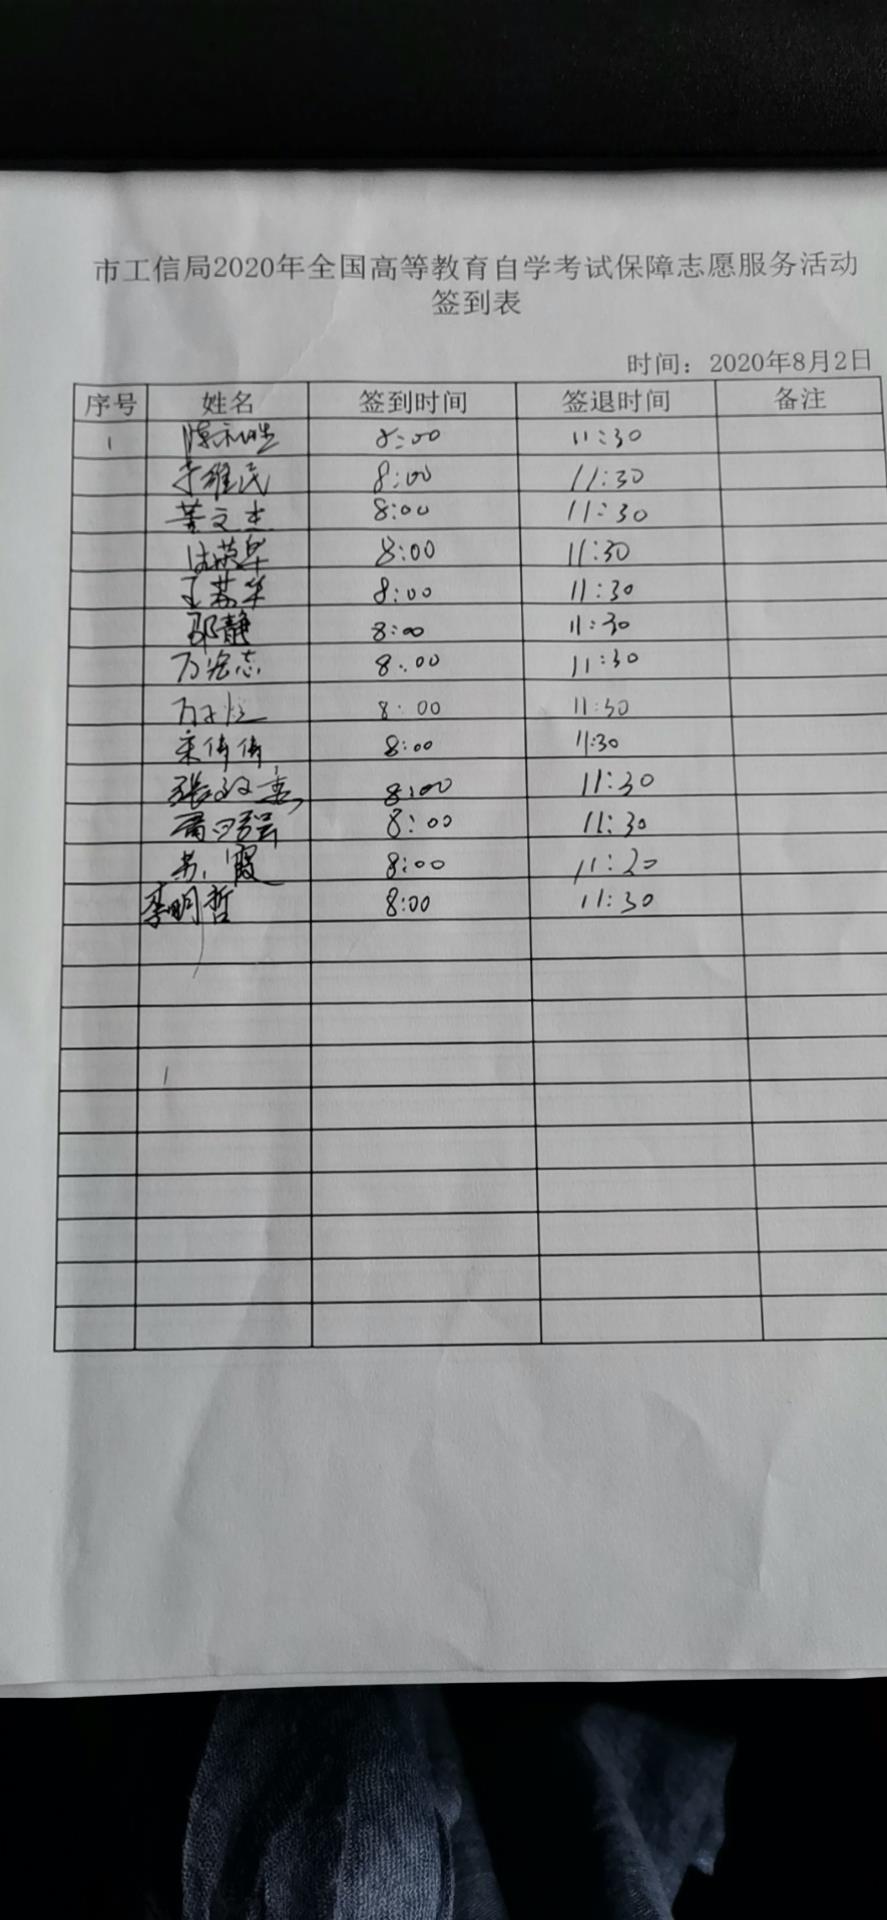 市工信局2020年全国高等教育自学考试保障志愿服务活动
签到表
时间：2020年8月2日
序号 姓名 签到时间 签退时间 备注
1 8:00 11:30
于维民 8:00 11:30
董文杰 8:00 11:30
8:00 11:30
8:00 11:30
邵静 8:00 11:30
万宏志 8:00 11:30
8:00 11:30
宋倩倩 8:00 11:30
8:00 11:30
8:00 11:30
霞 8:00 11:20
李明哲 8:00 11:30